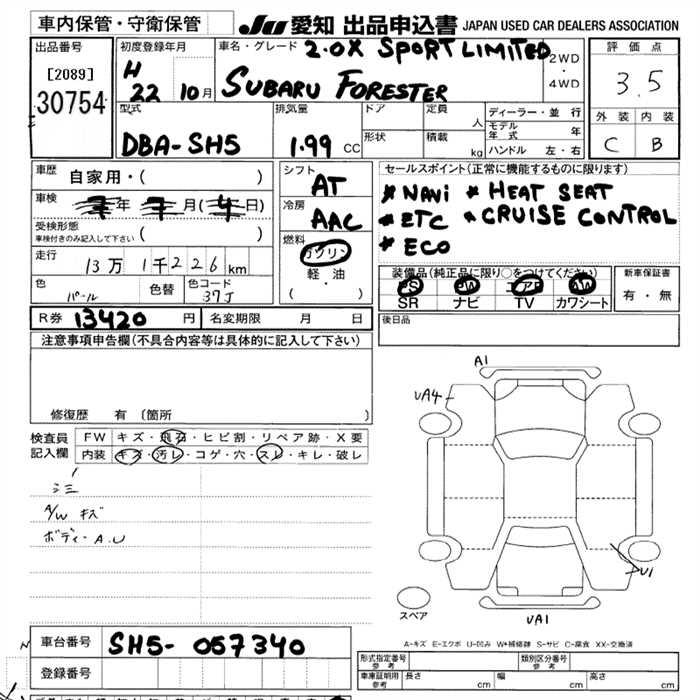 車内保管・守衛保管 JU 愛知 出品申込書 JAPAN USED CAR DEALERS ASSOCIATION
出品番号 初度登録年月 車名・グレード 2.0X SPORT LIMITED 2WD・4WD 評価点
[2089] H 22 10月 SUBARU FORESTER 3.5
30754 型式 排気量 ドア 定員 人 ディーラー・並行 外装 内装
DBA-SH5 1.99 CC 形状 積載 kg モデル年式 年 C B
ハンドル 左・右
車歴 自家用・( ) シフト AT セールスポイント(正常に機能するものに限ります)
車検 年 月( 日) 冷房 AAC * NAVI * HEAT SEAT
受検形態 ( ) * ETC * CRUISE CONTROL
車検付きのみ記入して下さい 燃料 ガソリン * ECO
走行 13万 1千226km 軽・油 装備品(純正品に限り○をつけてください) 新車保証書
色 パール 色替 色コード 37J ( ・ ) PS PW エアB AW 有・無
SR ナビ TV カワシート
R券 13420 円 名変期限 月 日 後日品
注意事項申告欄(不具合内容等は具体的に記入して下さい)
A1
UA4
修復歴 有 (箇所 )
検査員 FW キズ・飛石・ヒビ割・リペア跡・X要
記入欄 内装 キズ・汚レ・コゲ・穴・スレ・キレ・破レ
A/W キズ
ボディー A.U
U1
スペア UA1
A-キズ E-エクボ U-凹み W-補修跡 S-サビ C-腐食 XX-交換済
車台番号 SH5-057340
登録番号
形式指定番号 参考 類別区分番号 参考
車庫証明用 参考 長さ cm 幅 cm 高さ cm